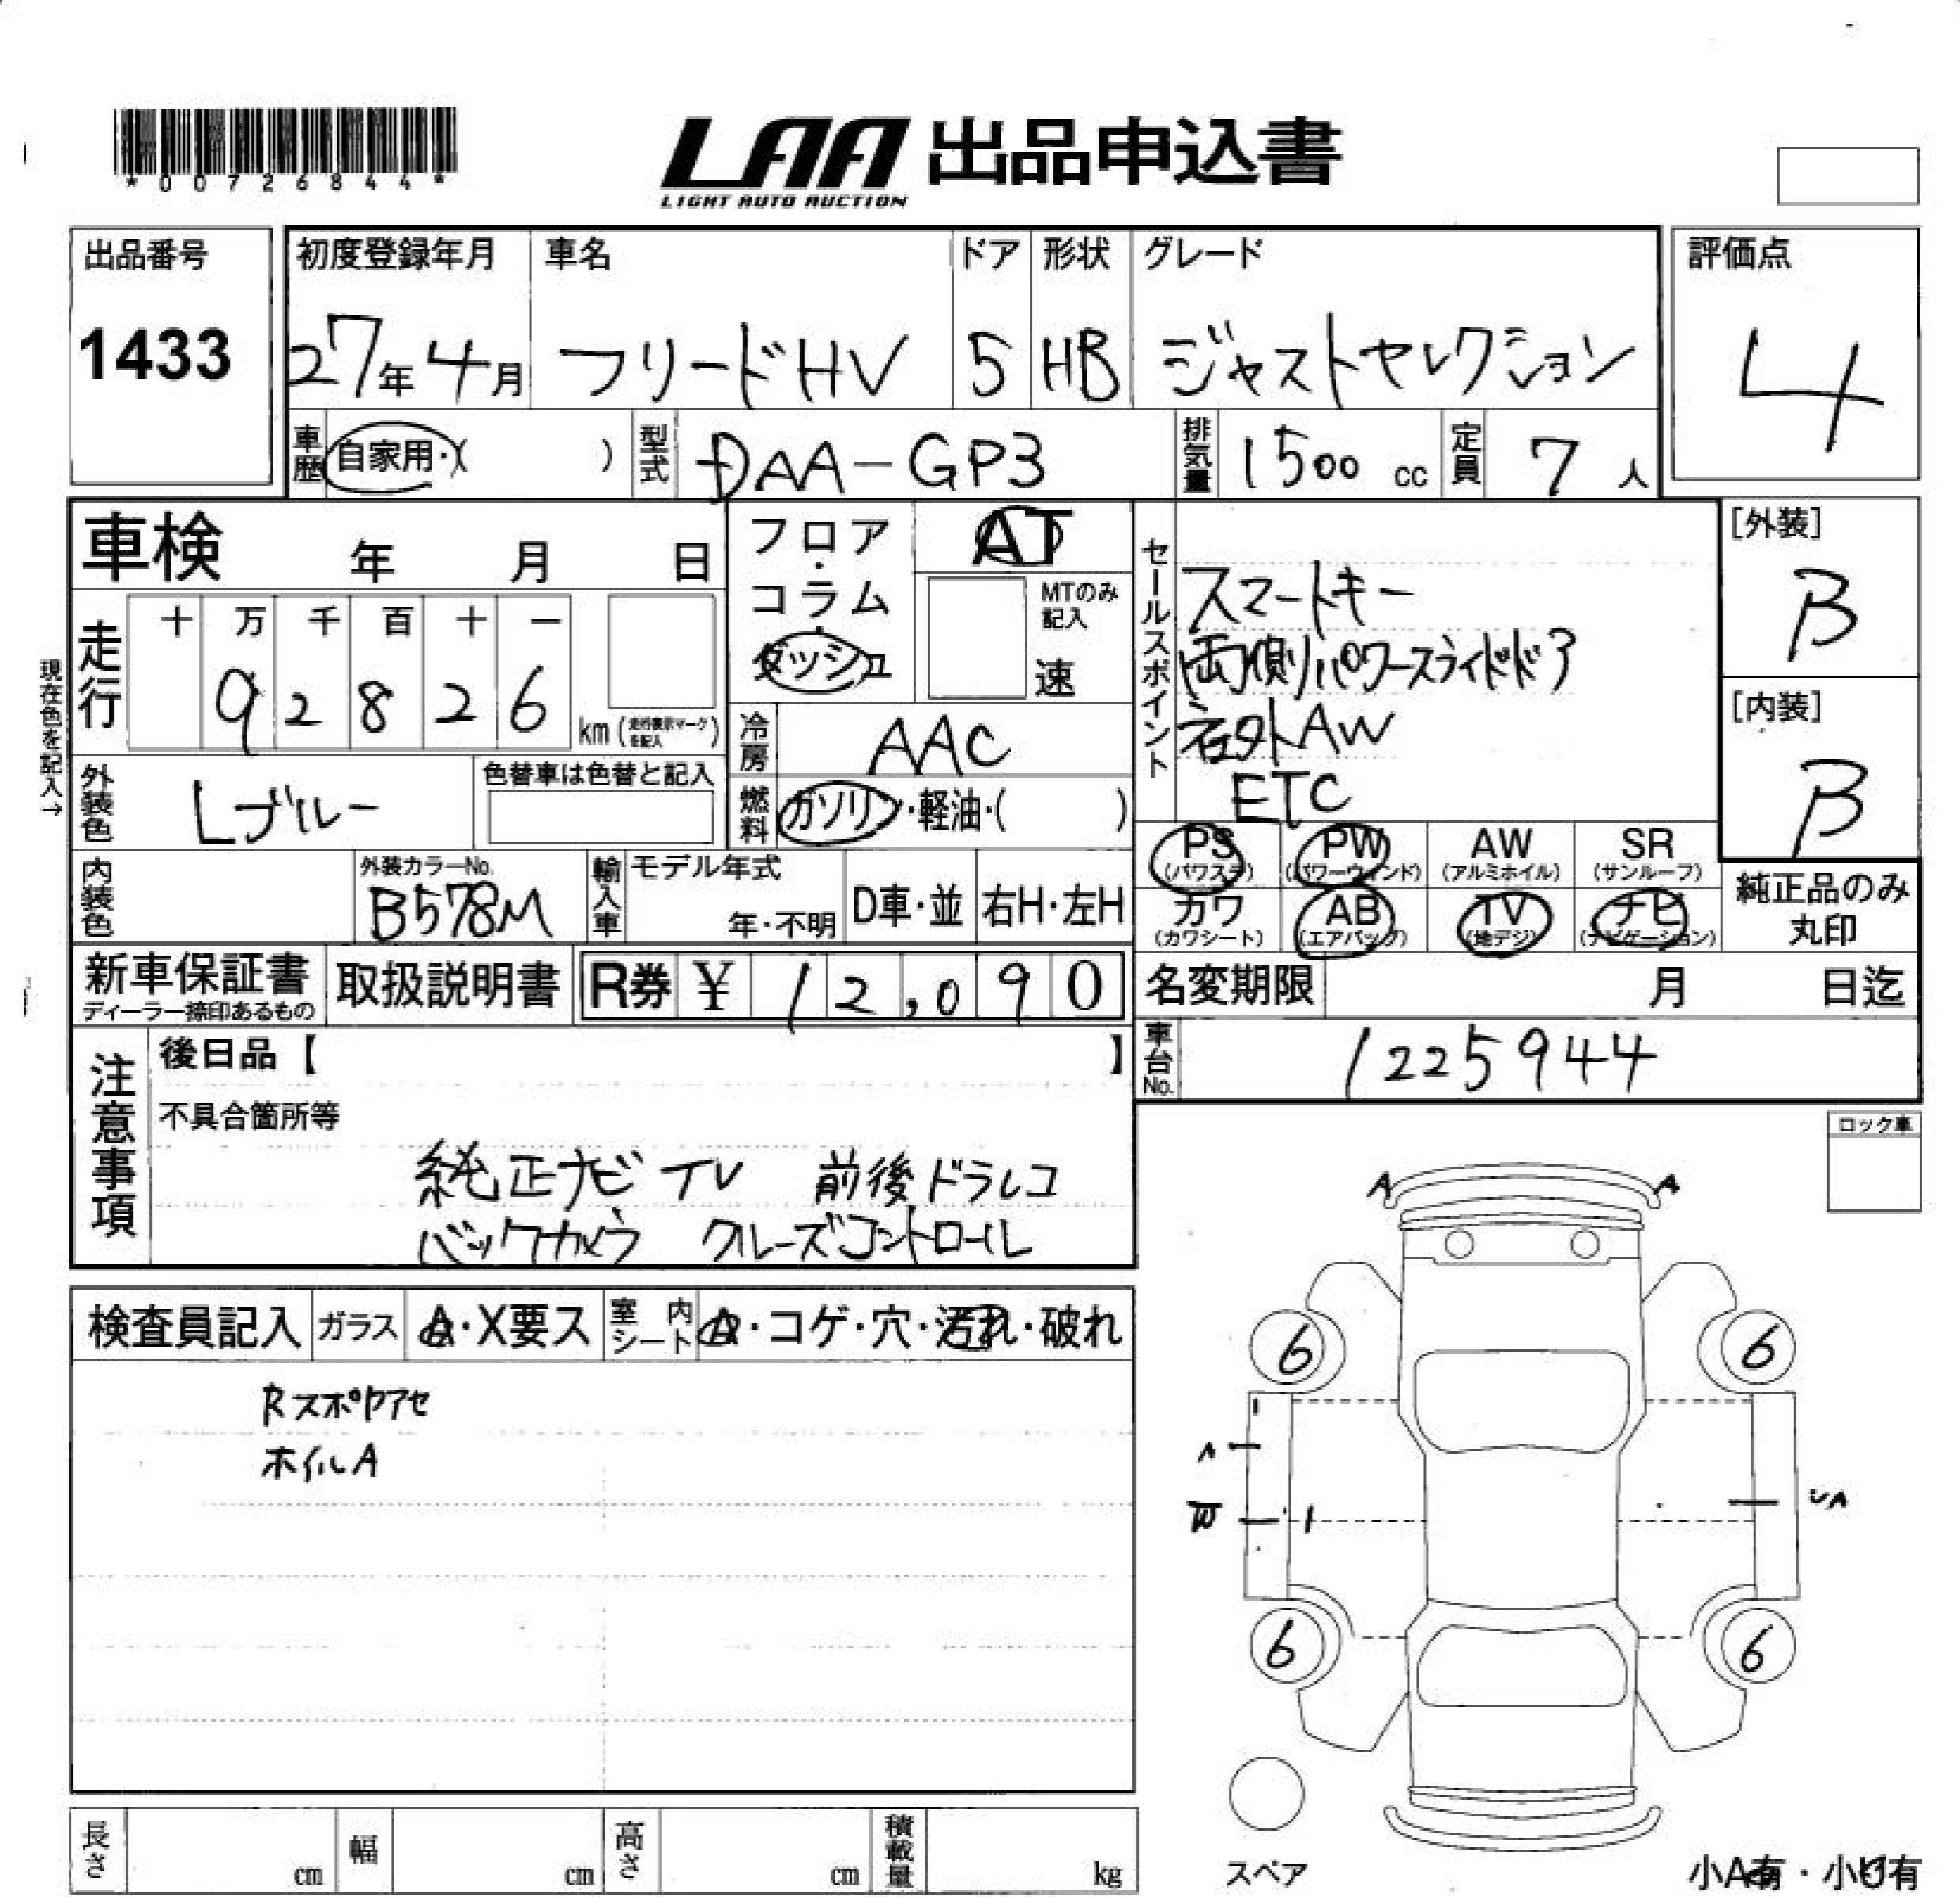 *00726844*
LAA 出品申込書
LIGHT AUTO AUCTION
出品番号
1433
初度登録年月
27年4月
車名
フリードHV
ドア
5
形状
HB
グレード
ジャストセレクション
評価点
4
車歴
自家用・( )
型式
DAA-GP3
排気量
1500 cc
定員
7 人
車検 年 月 日
フロア・コラム・ダッシュ
AT
MTのみ記入
速
セールスポイント
スマートキー
両側パワースライドドア
社外AW
ETC
[外装]
B
[内装]
B
現在色を記入→
走行
十 万 千 百 十 一
9 2 8 2 6
km (走行表示マークを記入)
冷房
AAC
外装色
Lブルー
色替車は色替と記入
燃料
ガソリン・軽油・( )
PS (パワステ)
PW (パワーウィンド)
AW (アルミホイル)
SR (サンルーフ)
カワ (カワシート)
AB (エアバッグ)
TV (地デジ)
ナビ (ナビゲーション)
純正品のみ丸印
内装色
外装カラーNo.
B578M
輸入車
モデル年式
年・不明
D車・並
右H・左H
新車保証書
ディーラー捺印あるもの
取扱説明書
R券 ¥ 12,090
名変期限 月 日迄
車台No.
1225944
注意事項
後日品【 】
不具合箇所等
純正ナビ TV 前後ドラレコ
バックカメラ クルーズコントロール
ロック車
検査員記入
ガラス
A・X要ス
室内シート
A・コゲ・穴・汚れ・破れ
Rスポイラアセ
ホイルA
A A
6 6
A
W
UA
6 6
スペア
小A有・小U有
長さ cm
幅 cm
高さ cm
積載量 kg